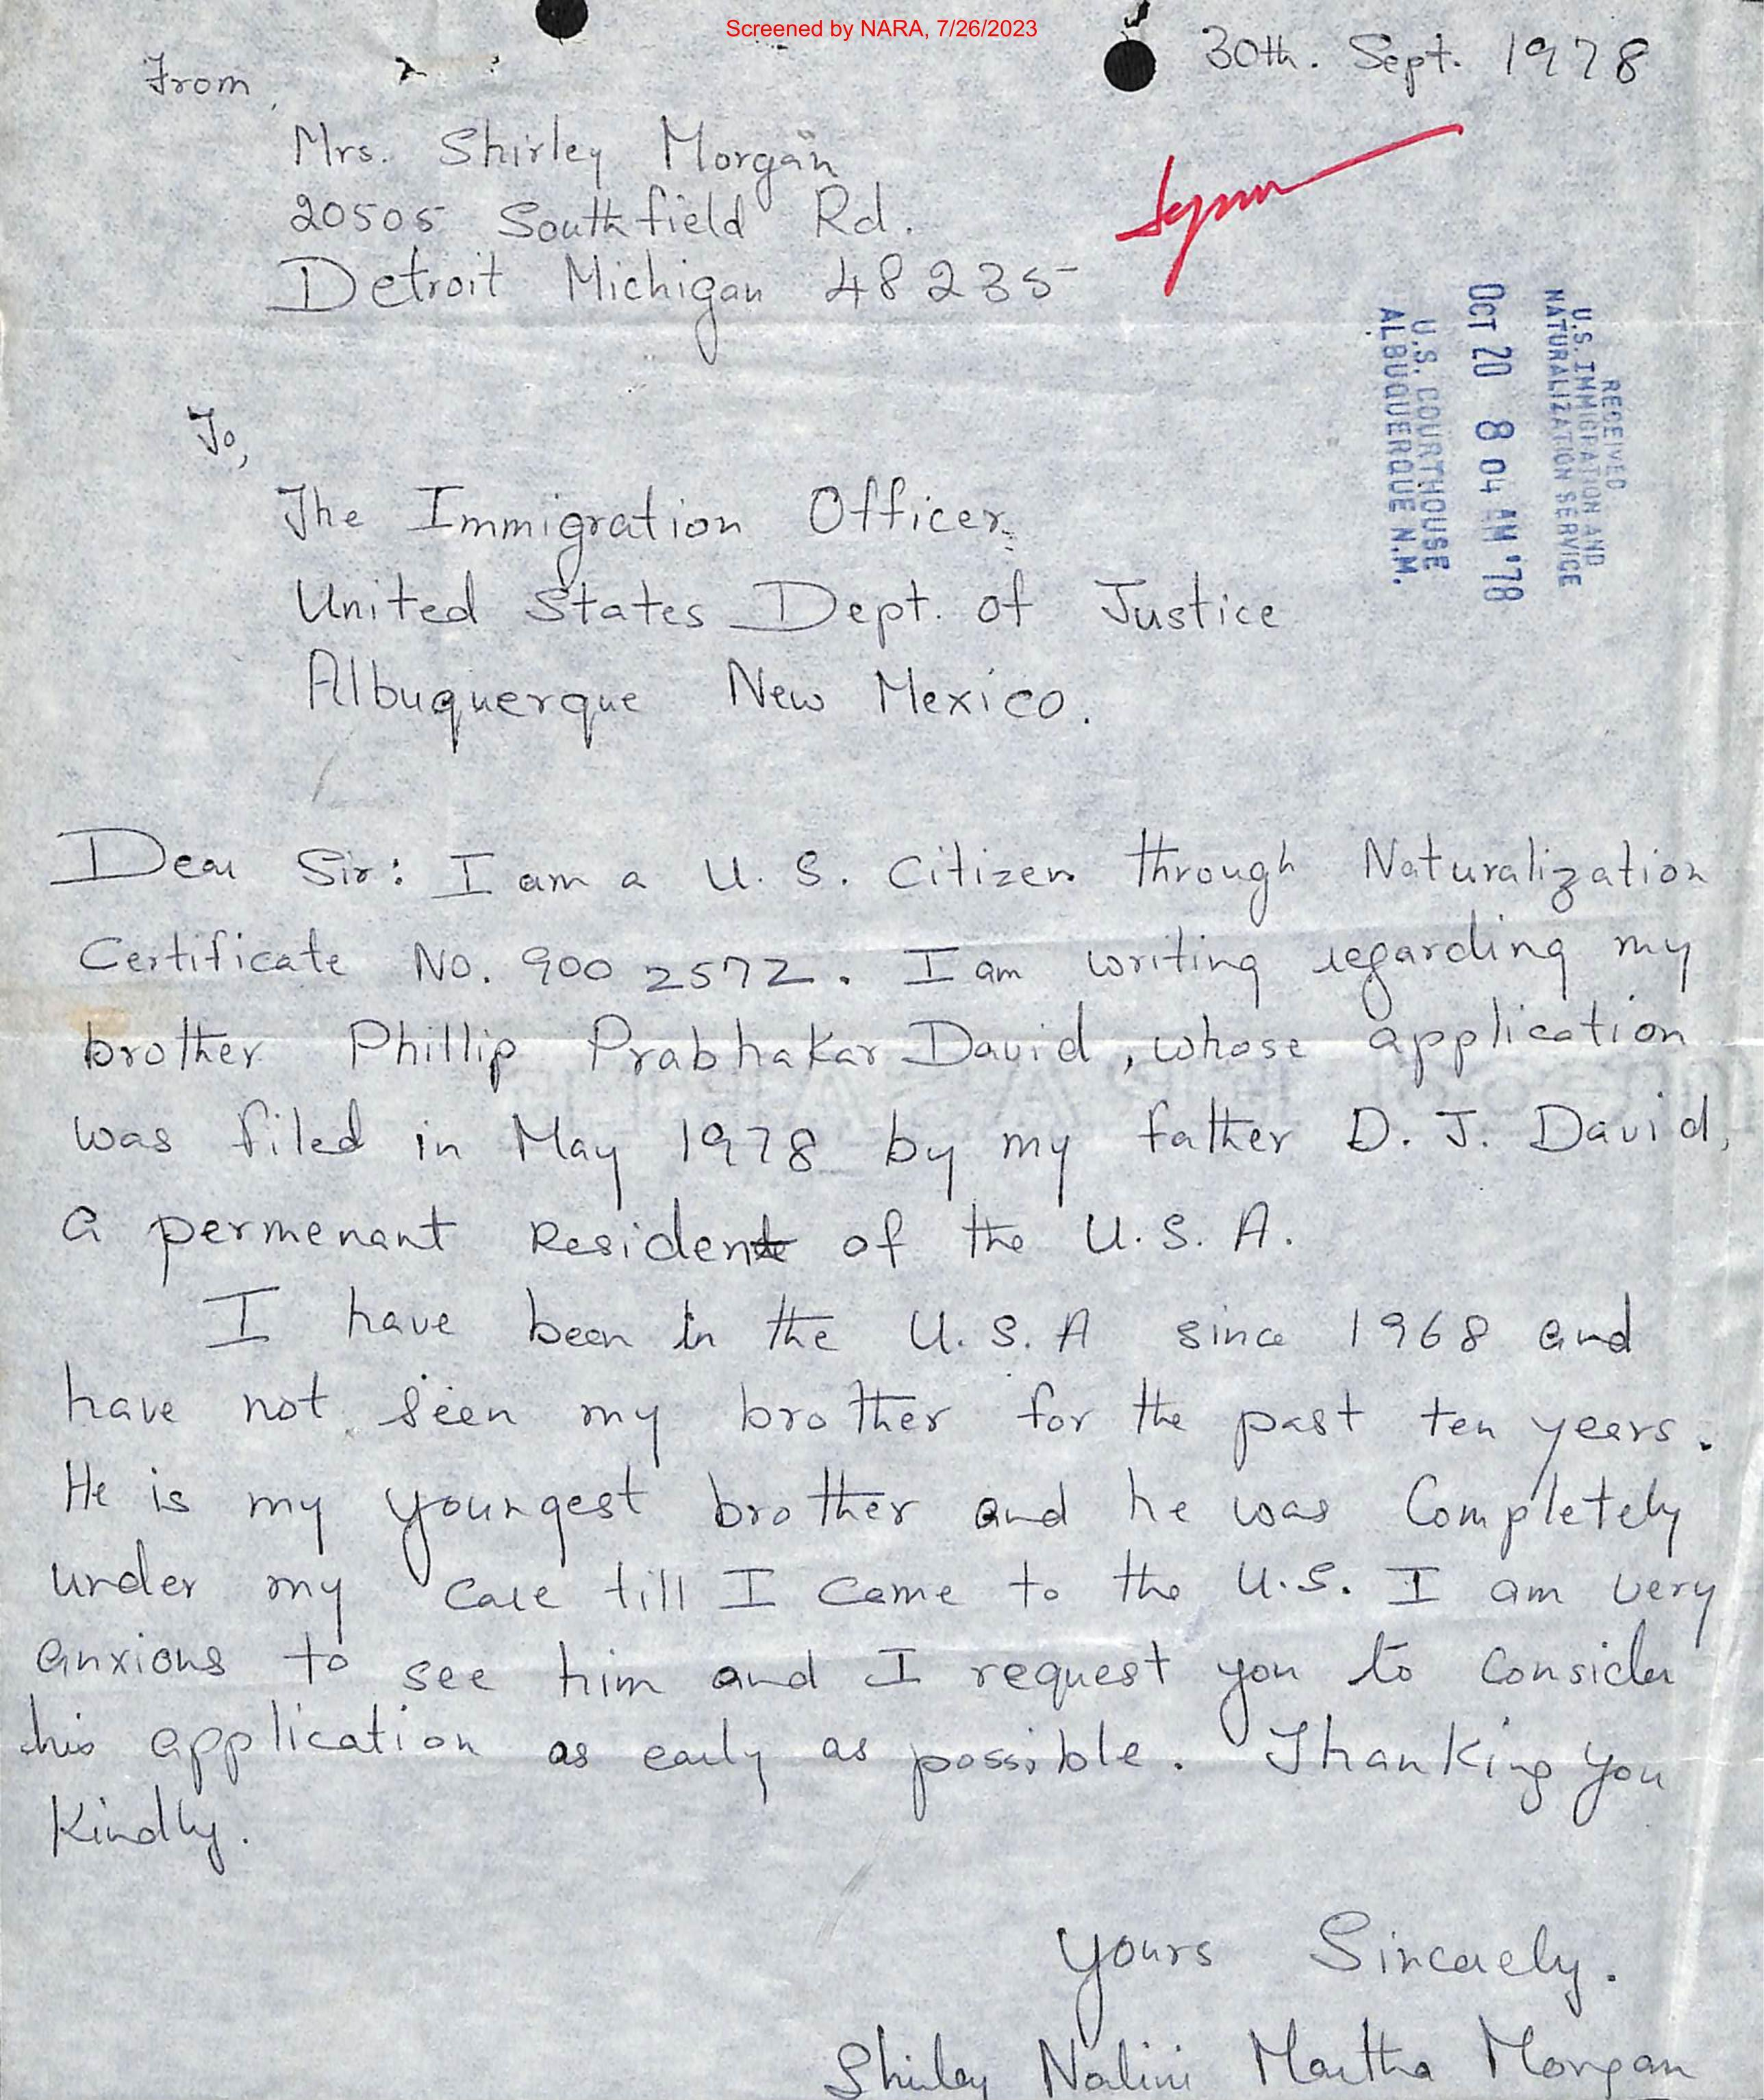 Screened by NARA, 7/26/2023
30th. Sept. 1978
From,
Mrs. Shirley Morgan
20505 Southfield Rd.
Detroit Michigan 48235
RECEIVED
U.S. IMMIGRATION AND
NATURALIZATION SERVICE
OCT 20 8 04 AM '78
U.S. COURTHOUSE
ALBUQUERQUE N.M.
To,
The Immigration Officer.
United States Dept. of Justice
Albuquerque New Mexico.
Dear Sir: I am a U. S. Citizen through Naturalization
Certificate No. 900 2572. I am writing regarding my
brother Phillip Prabhakar David, whose application
was filed in May 1978 by my father D. J. David,
a permenant Resident of the U. S. A.
I have been in the U. S. A since 1968 and
have not seen my brother for the past ten years.
He is my youngest brother and he was Completely
under my care till I came to the U.S. I am very
anxious to see him and I request you to consider
his application as early as possible. Thanking you
Kindly.
Yours Sincerely.
Shirley Nalini Martha Morgan